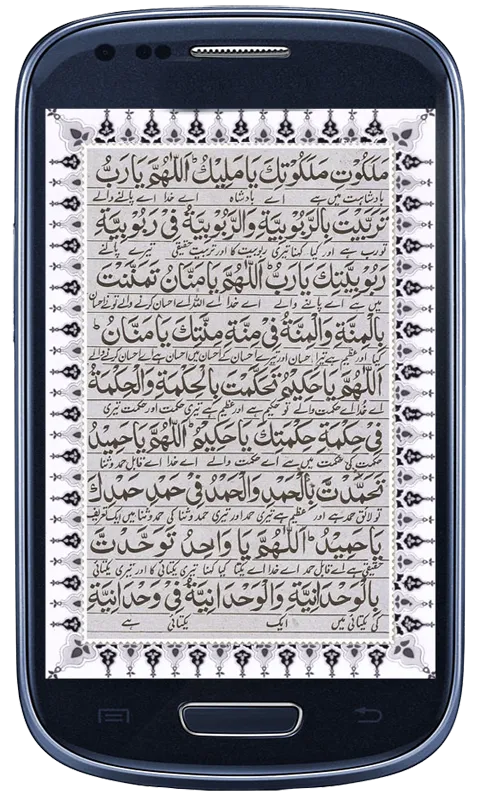 مَلَكُوْتِ مَلَكُوْتِكَ يَا مَلِيْكُ اَللّٰهُمَّ يَا رَبُّ
بادشاہت میں ہے اے بادشاہ اے خدا اے پالنے والے
تَرَبَّيْتَ بِالرَّبُوْبِيَّةِ وَالرَّبُوْبِيَّةُ فِيْ رَبُوْبِيَّةِ
تو رب ہے اور کیا کہنا تیری ربوبیت کا اور تربیت حقیقی تیرے پالنے
رَبُوْبِيَّتِكَ يَا رَبُّ اَللّٰهُمَّ يَا مَنَّانُ تَمَنَّنْتَ
میں ہے اے پالنے والے اے خدا اے احسان کرنے والے تو نے احسان
بِالْمِنَّةِ وَالْمِنَّةُ فِيْ مِنَّةِ مِنَّتِكَ يَا مَنَّانُ
کیا اور عظیم ہے تیرا احسان اور تیرے احسان کے احسان میں احسان ہے اے احسان کرنے والے
اَللّٰهُمَّ يَا حَكِيْمُ تَحَكَّمْتَ بِالْحِكْمَةِ وَالْحِكْمَةُ
اے خدا اے حکمت والے تو حکیم ہے اور عظیم ہے تیری حکمت اور حکمت تیری
فِيْ حِكْمَةِ حِكْمَتِكَ يَا حَكِيْمُ اَللّٰهُمَّ يَا حَمِيْدُ
حکمت کی حکمت میں سے اے حکمت والے اے خدا اے قابل حمد و ثنا
تَحَمَّدْتَ بِالْحَمْدِ وَالْحَمْدُ فِيْ حَمْدِ حَمْدِكَ
تو لائق حمد ہے اور عظیم ہے تیری حمد اور تیری حمد و ثنا کی حمد و ثنا میں ایک تعریف
يَا حَمِيْدُ اَللّٰهُمَّ يَا وَاحِدُ تَوَحَّدْتَّ
حقیقی ہے اے قابل حمد اے خدا اے یکتا کیا کہنا تیری یکتائی کا اور تیری یکتائی
بِالْوَحْدَانِيَّةِ وَالْوَحْدَانِيَّةُ فِيْ وَحْدَانِيَّةِ
کی یکتائی میں ایک یکتائی ہے